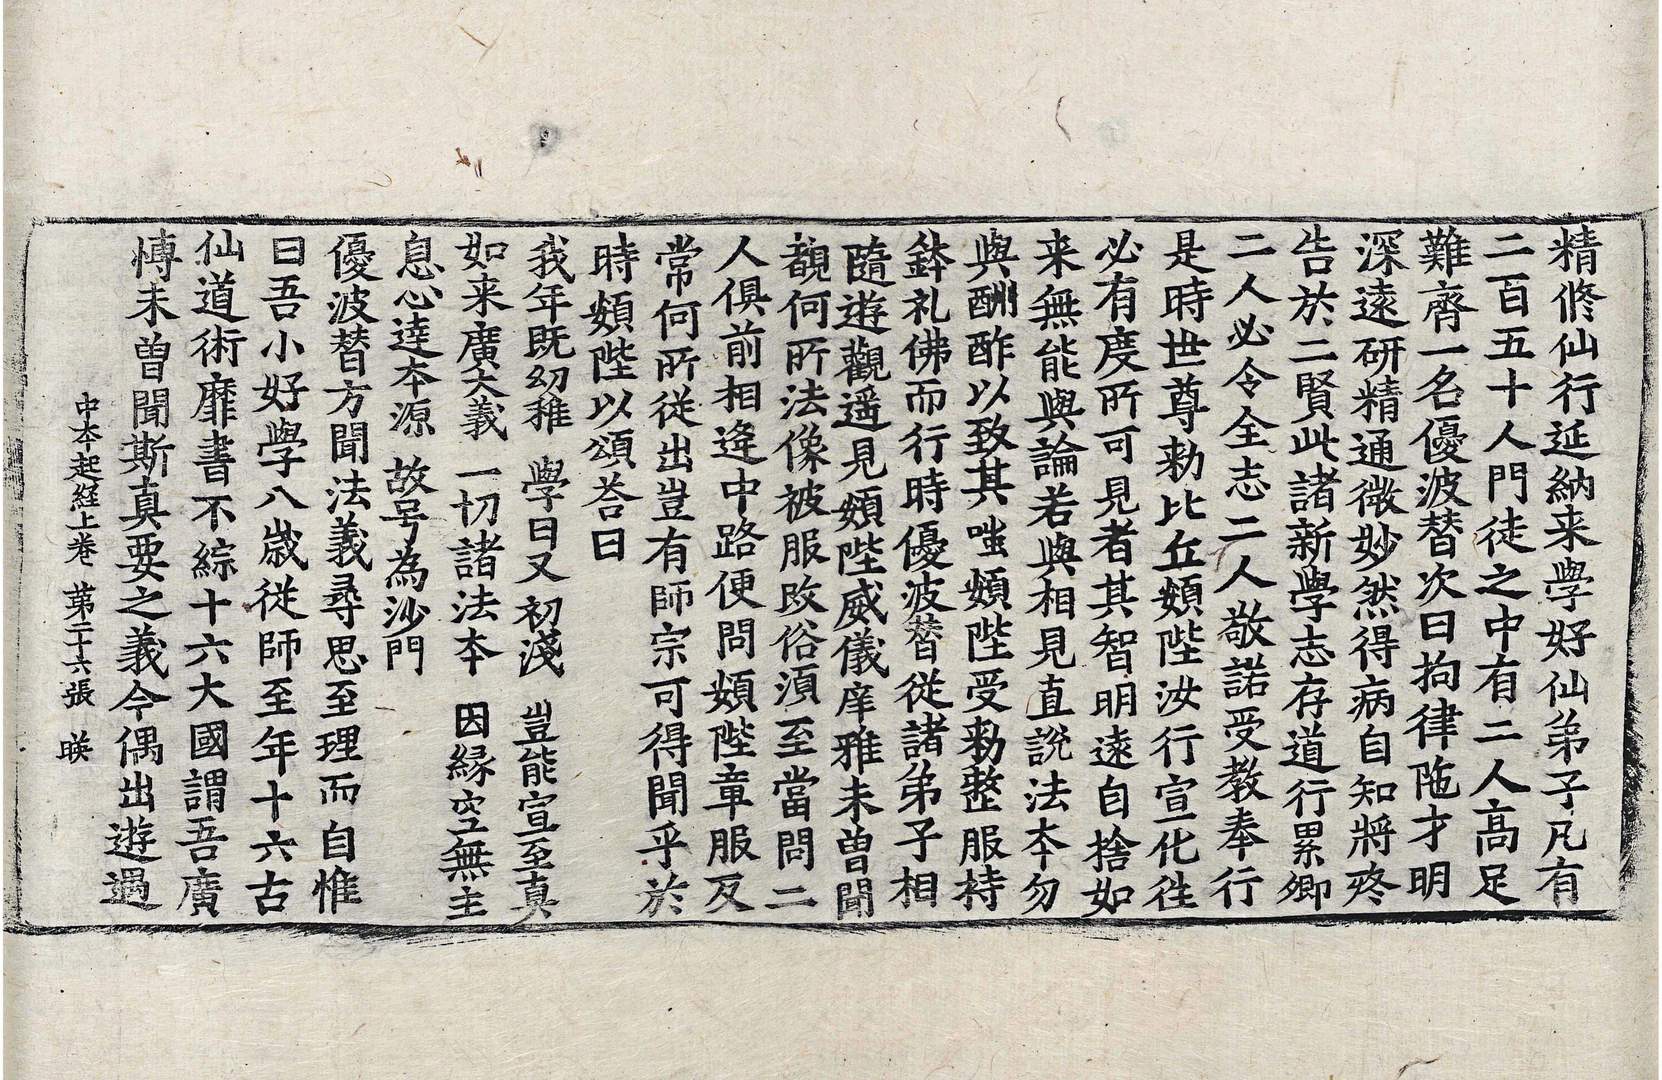 精修仙行延納来學好仙弟子凡有
二百五十人門徒之中有二人高足
難齊一名優波替次曰拘律陁才明
深遠研精通微妙然得病自知將終
告於二賢此諸新學志存道行累卿
二人必令全志二人敬諾受教奉行
是時世尊勑比丘頞陛汝行宣化徃
必有度所可見者其智明遠自捨如
来無能與論若與相見直說法本勿
與酬酢以致其嗤頞陛受勑整服持
鉢礼佛而行時優波替從諸弟子相
隨遊觀遥見頞陛威儀庠雅未曽聞
覩何所法像被服改俗湏至當問二
人俱前相逢中路便問頞陛章服反
常何所從出豈有師宗可得聞乎於
時頞陛以頌荅曰
我年既幼稚 學日又初淺 豈能宣至真
如来廣大義 一切諸法本 因縁空無主
息心達本源 故号為沙門
優波替方聞法義尋思至理而自惟
曰吾小好學八歲從師至年十六古
仙道術靡書不綜十六大國謂吾廣
愽未曽聞斯真要之義今偶出遊過
中本起経上卷 第二十六張 暎